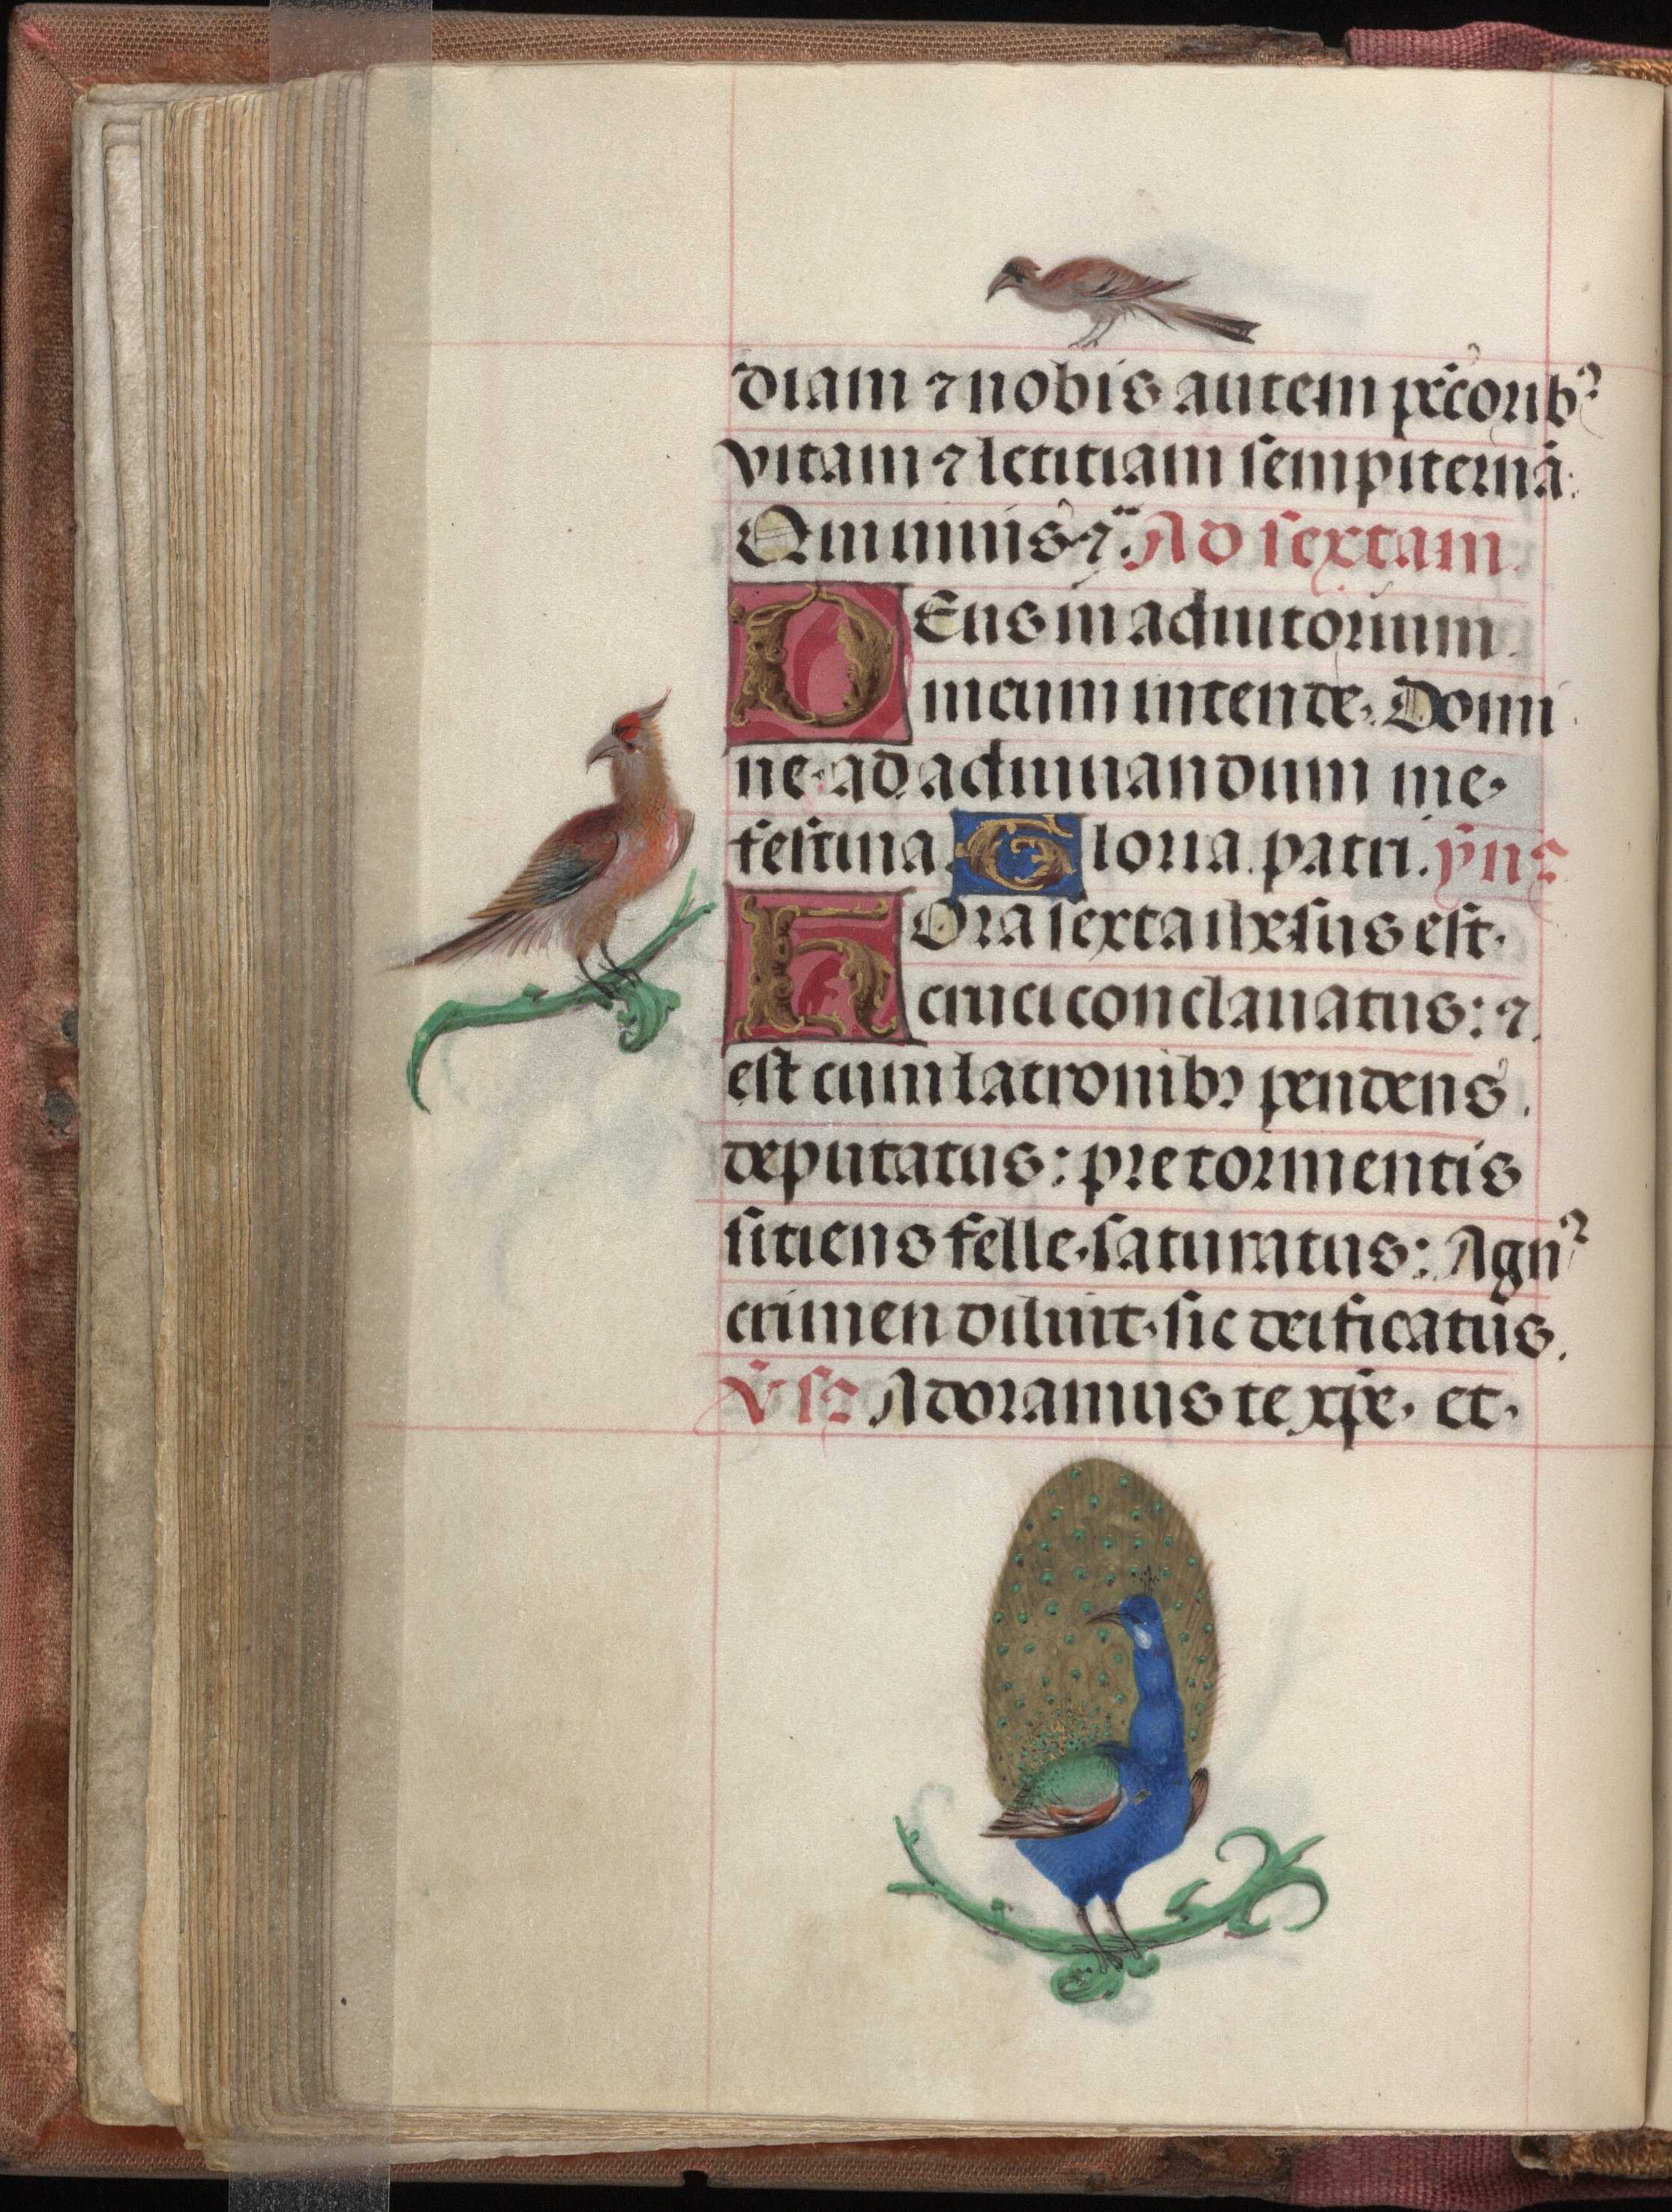 diam ⁊ nobis autem pctorib⁹
vitam ⁊ letitiam sempiternā.
Qui viuis ⁊c̄. Ad sextam.
DEus in adiutorium
meum intende. Domi
ne ad adiuuandum me
festina. Gloria patri. ẏn⁊
HOra sexta ihesus est
cruci conclauatus: ⁊
est cum latronibꝫ pendens
deputatus: pre tormentis
sitiens felle saturatus: Agn⁹
crimen diluit sic deificatus.
V̇sꝫ Adoramus te xp̄e. et